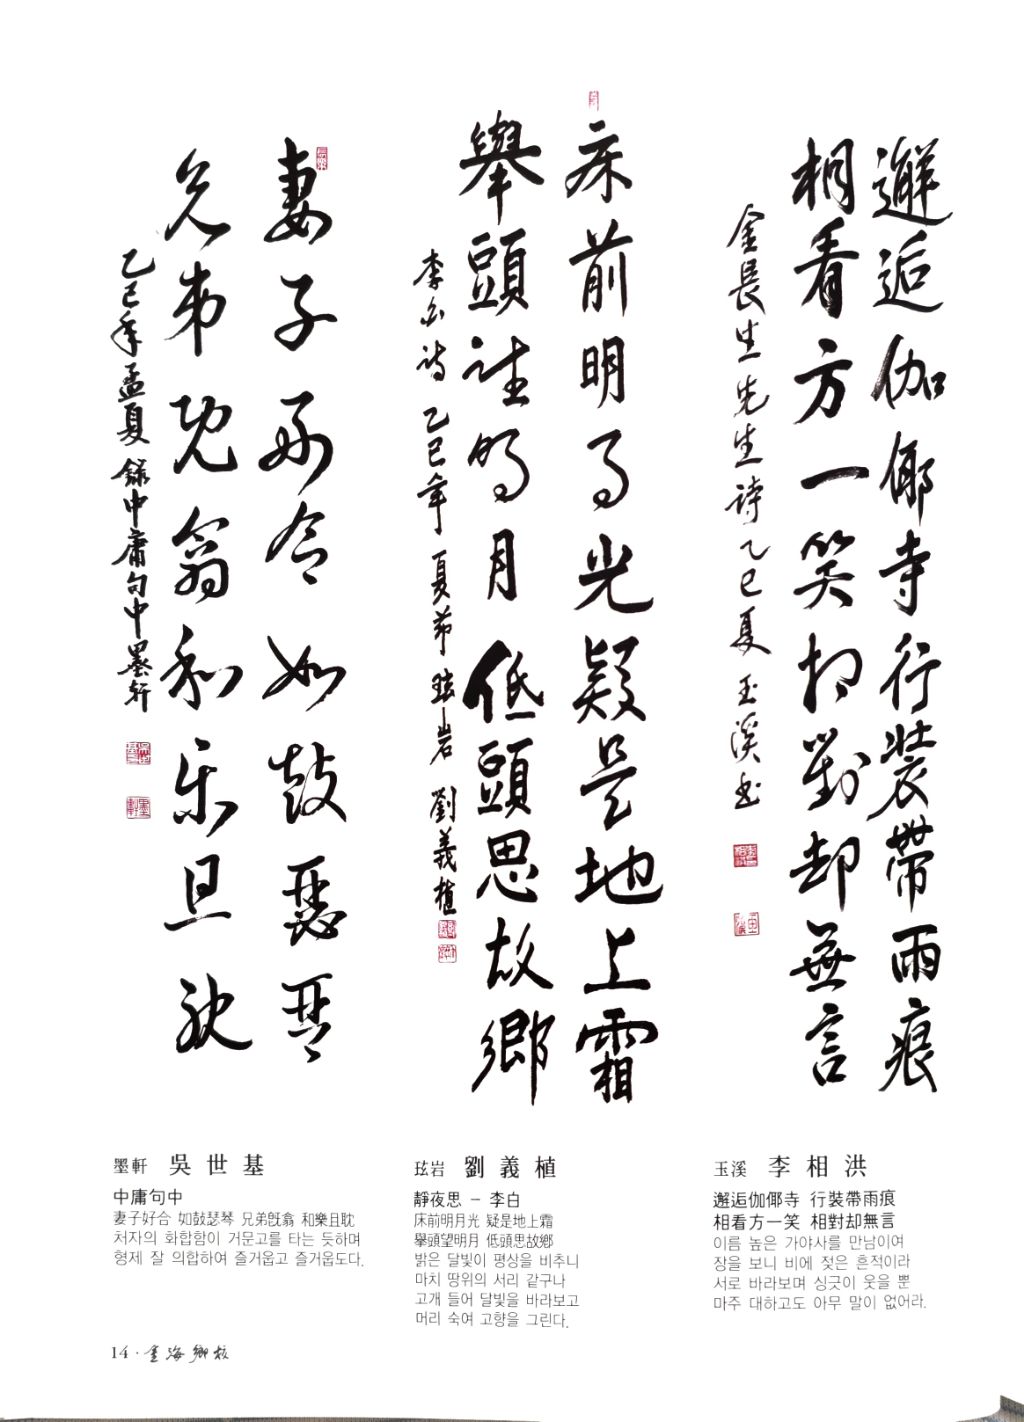 邂逅伽倻寺行裝帶雨痕
相看方一笑相對却無言
金長生先生詩乙巳夏玉溪书
床前明月光疑是地上霜
擧頭望明月低頭思故鄉
李白詩 乙巳年 夏節 玹岩 劉義植
妻子好合如鼓瑟琴
兄弟旣翕和樂且耽
乙巳年孟夏 錄中庸句中墨軒
墨軒 吳世基
中庸句中
妻子好合 如鼓瑟琴 兄弟旣翕 和樂且耽
처자의 화합함이 거문고를 타는 듯하며
형제 잘 의합하여 즐거웁고 즐거웁도다.
玹岩 劉義植
靜夜思 – 李白
床前明月光 疑是地上霜
擧頭望明月 低頭思故鄕
밝은 달빛이 평상을 비추니
마치 땅위의 서리 같구나
고개 들어 달빛을 바라보고
머리 숙여 고향을 그린다.
玉溪 李相洪
邂逅伽倻寺 行裝帶雨痕
相看方一笑 相對却無言
이름 높은 가야사를 만남이여
장을 보니 비에 젖은 흔적이라
서로 바라보며 싱긋이 웃을 뿐
마주 대하고도 아무 말이 없어라.
14 · 金海鄉校